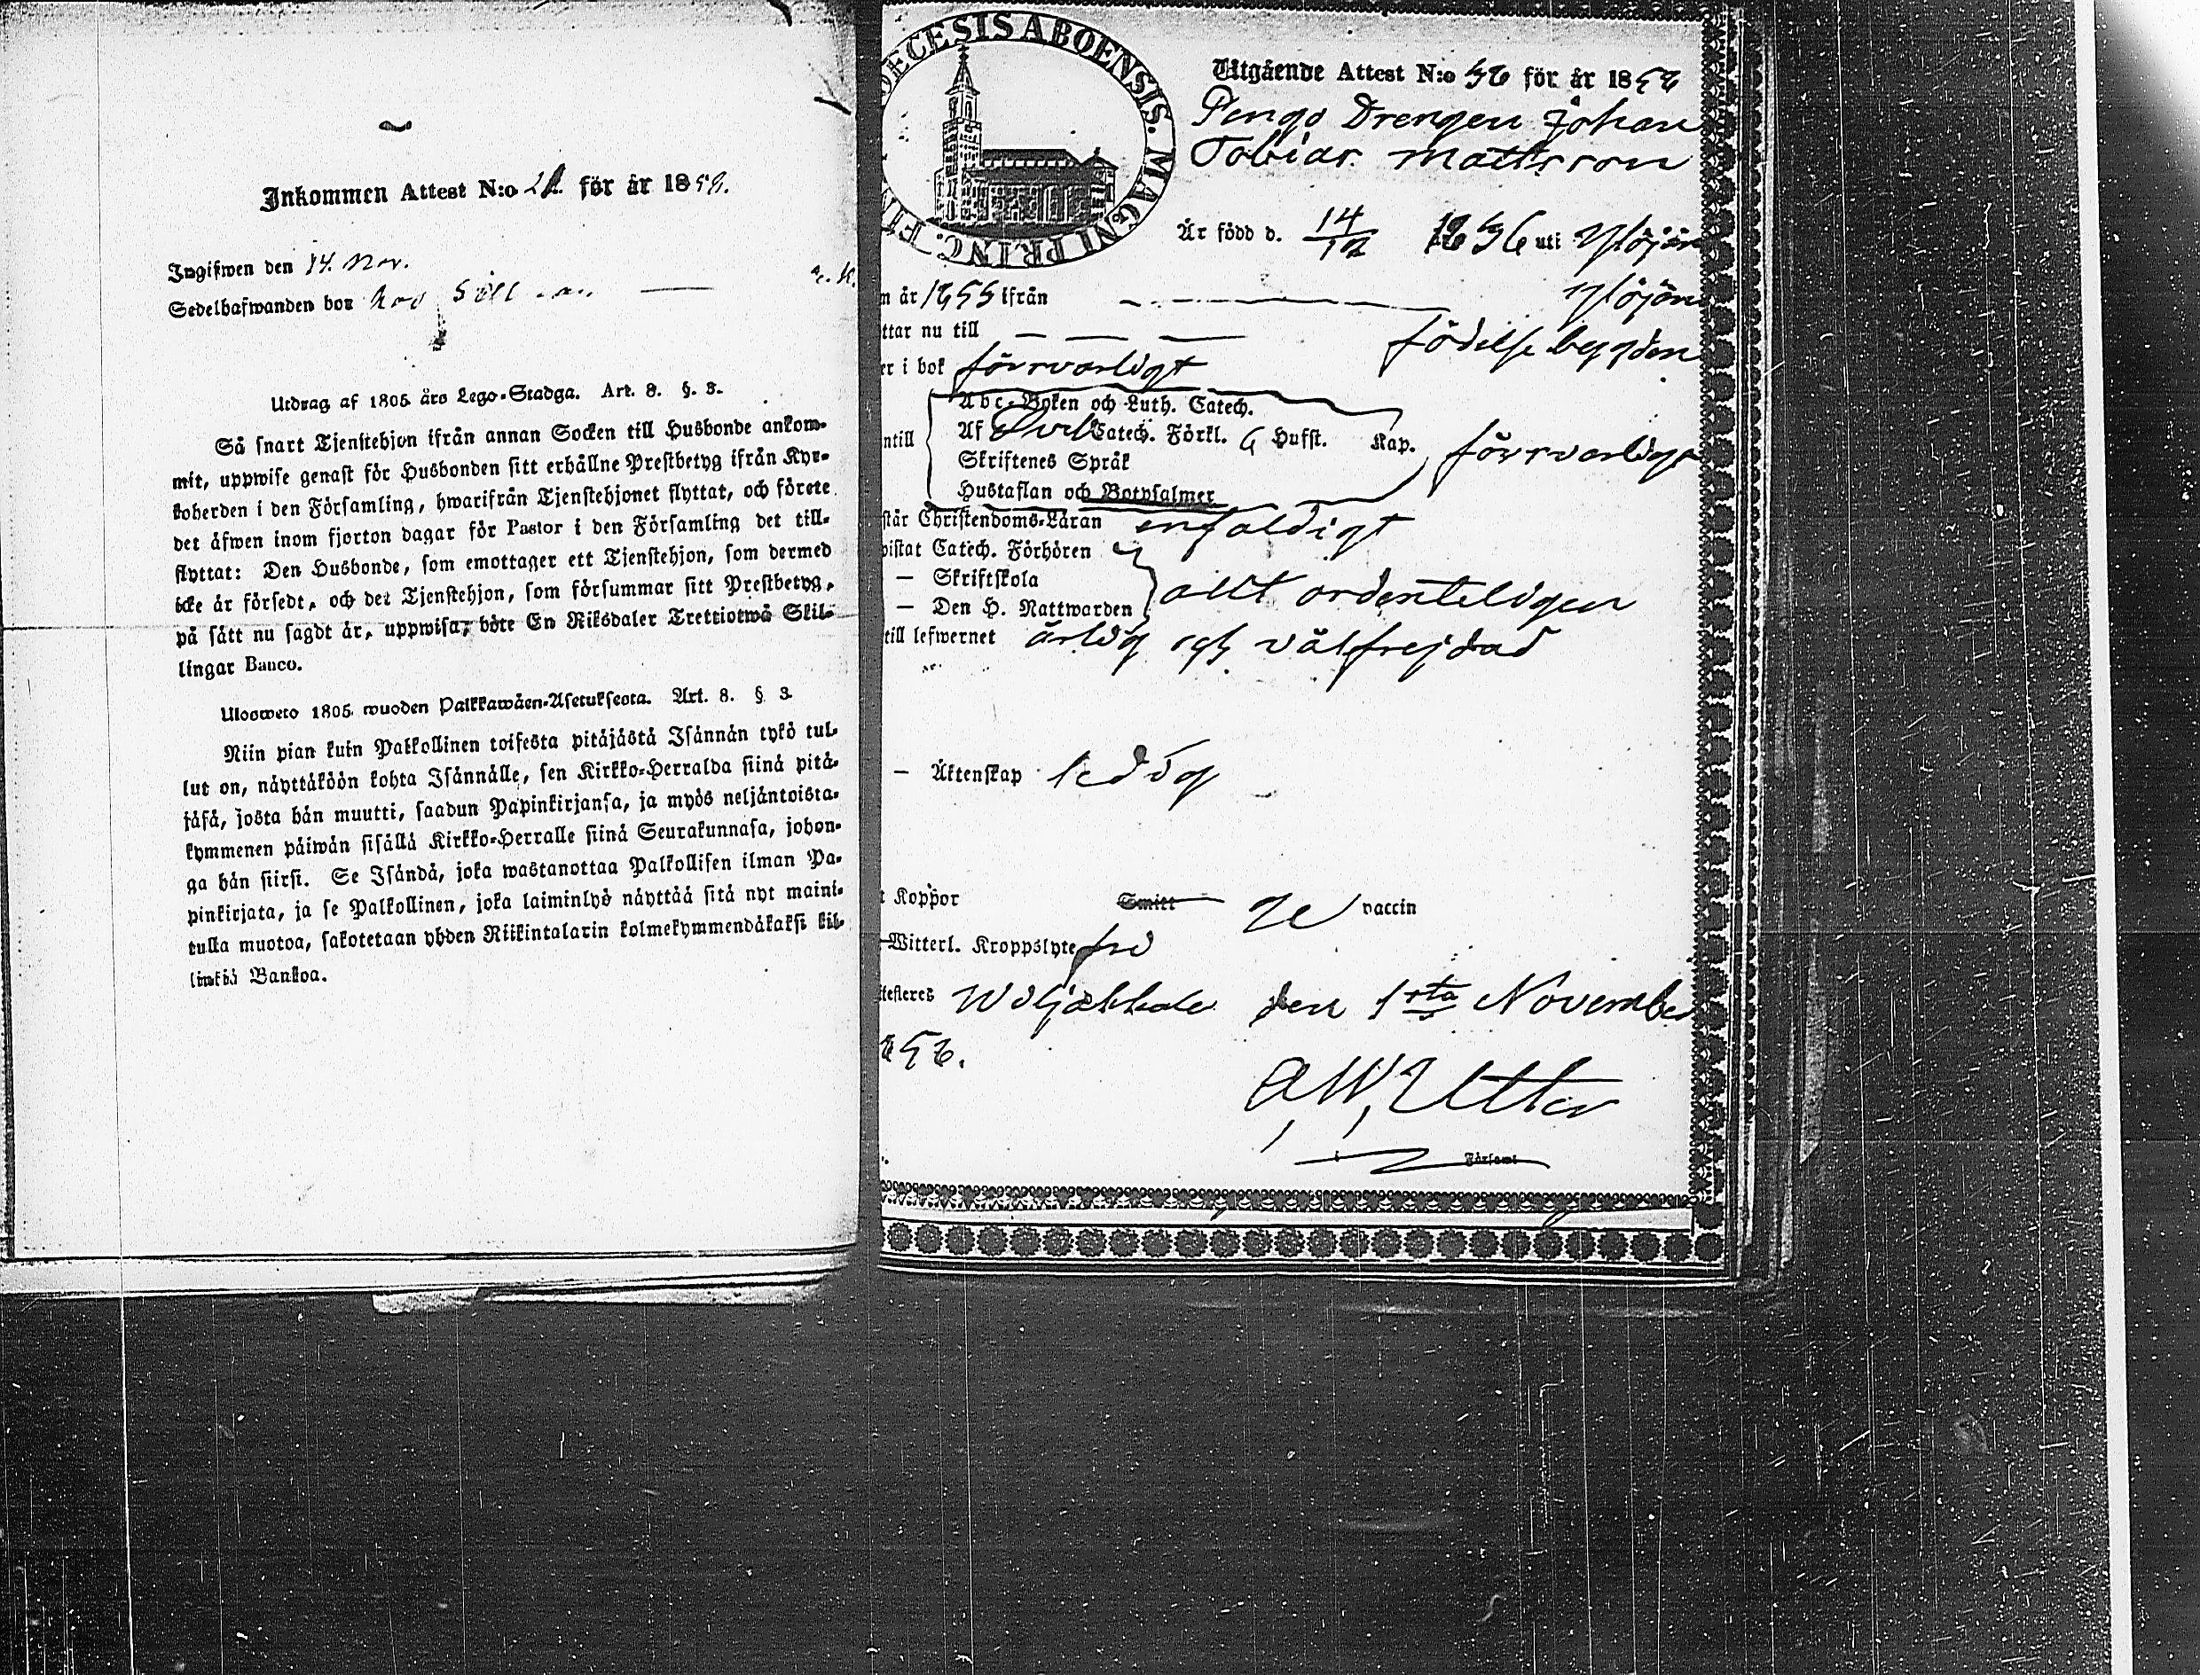 Inkommen Attest N:o för år 18
Ingifwen den 14. Nov.
Sedelhafwanden bor
Utdrag af 1805 års Lego-Stadga. Art. 8. §. 3.
Så snart Tjenstehjon ifrån annan Socken till Husbonde ankom-
mit, uppwise genast för Husbonden sitt erhållne Prestbetyg ifrån Kyr-
koherden i den Församling, hwarifrån Tjenstehjonet flyttat, och förete
det äfwen inom fjorton dagar för Pastor i den Församling det till-
flyttat: Den Husbonde, som emottager ett Tjenstehjon, som dermed
icke är försedt, och det Tjenstehjon, som försummar sitt Prestbetyg,
på sätt nu sagdt är, uppwisa, böte En Riksdaler Trettiotwå Skil-
lingar Banco.
Ulosweto 1805 wuoden Palkkawäen-Asetuksesta. Art. 8. § 3.
Niin pian kuin Palkollinen toisesta pitäjästä Isännän tykö tul-
lut on, näyttäköön kohta Isännälle, sen Kirkko-Herralda siinä pitä-
jäsä, josta hän muutti, saadun Papinkirjansa, ja myös neljäntoista-
kymmenen päiwän sisällä Kirkko-Herralle siinä Seurakunnasa, johon-
ga hän siirsi. Se Isändä, joka wastanottaa Palkollisen ilman Pa-
pinkirjata, ja se Palkollinen, joka laiminlyö näyttää sitä nyt maini-
tulla muotoa, sakotetaan yhden Riikintalarin kolmekymmendäkaksi kil-
linkiä Bankoa.
DECESIS ABOENSIS. MAGNI PRINC. FIN
Utgående Attest N:o för år 18
Drengen Johan
Tobias Mattsson
Är född d. 14/12 1836 uti Ylöjärvi
n år 1855 ifrån Ylöjärvi
ttar nu till födelse bygden
er i bok försvarligt
Abc-Boken och Luth. Catech.
ntill Af Svel Catech. Förkl. Husst. Kap. försvarligt
Skriftenes Språk
Hustaflan och Botpsalmer
står Christendoms-Läran enfaldigt
vistat Catech. Förhören
— Skriftskola allt ordenteligen
— Den H. Nattwarden
till lefwernet ärlig och välfrejdad
— Äktenskap ledig
t Koppor Smitt vaccin
Witterl. Kroppslyte fri
ttesteres Wiljakkala den 1sta November
A. W. Utter
Församl